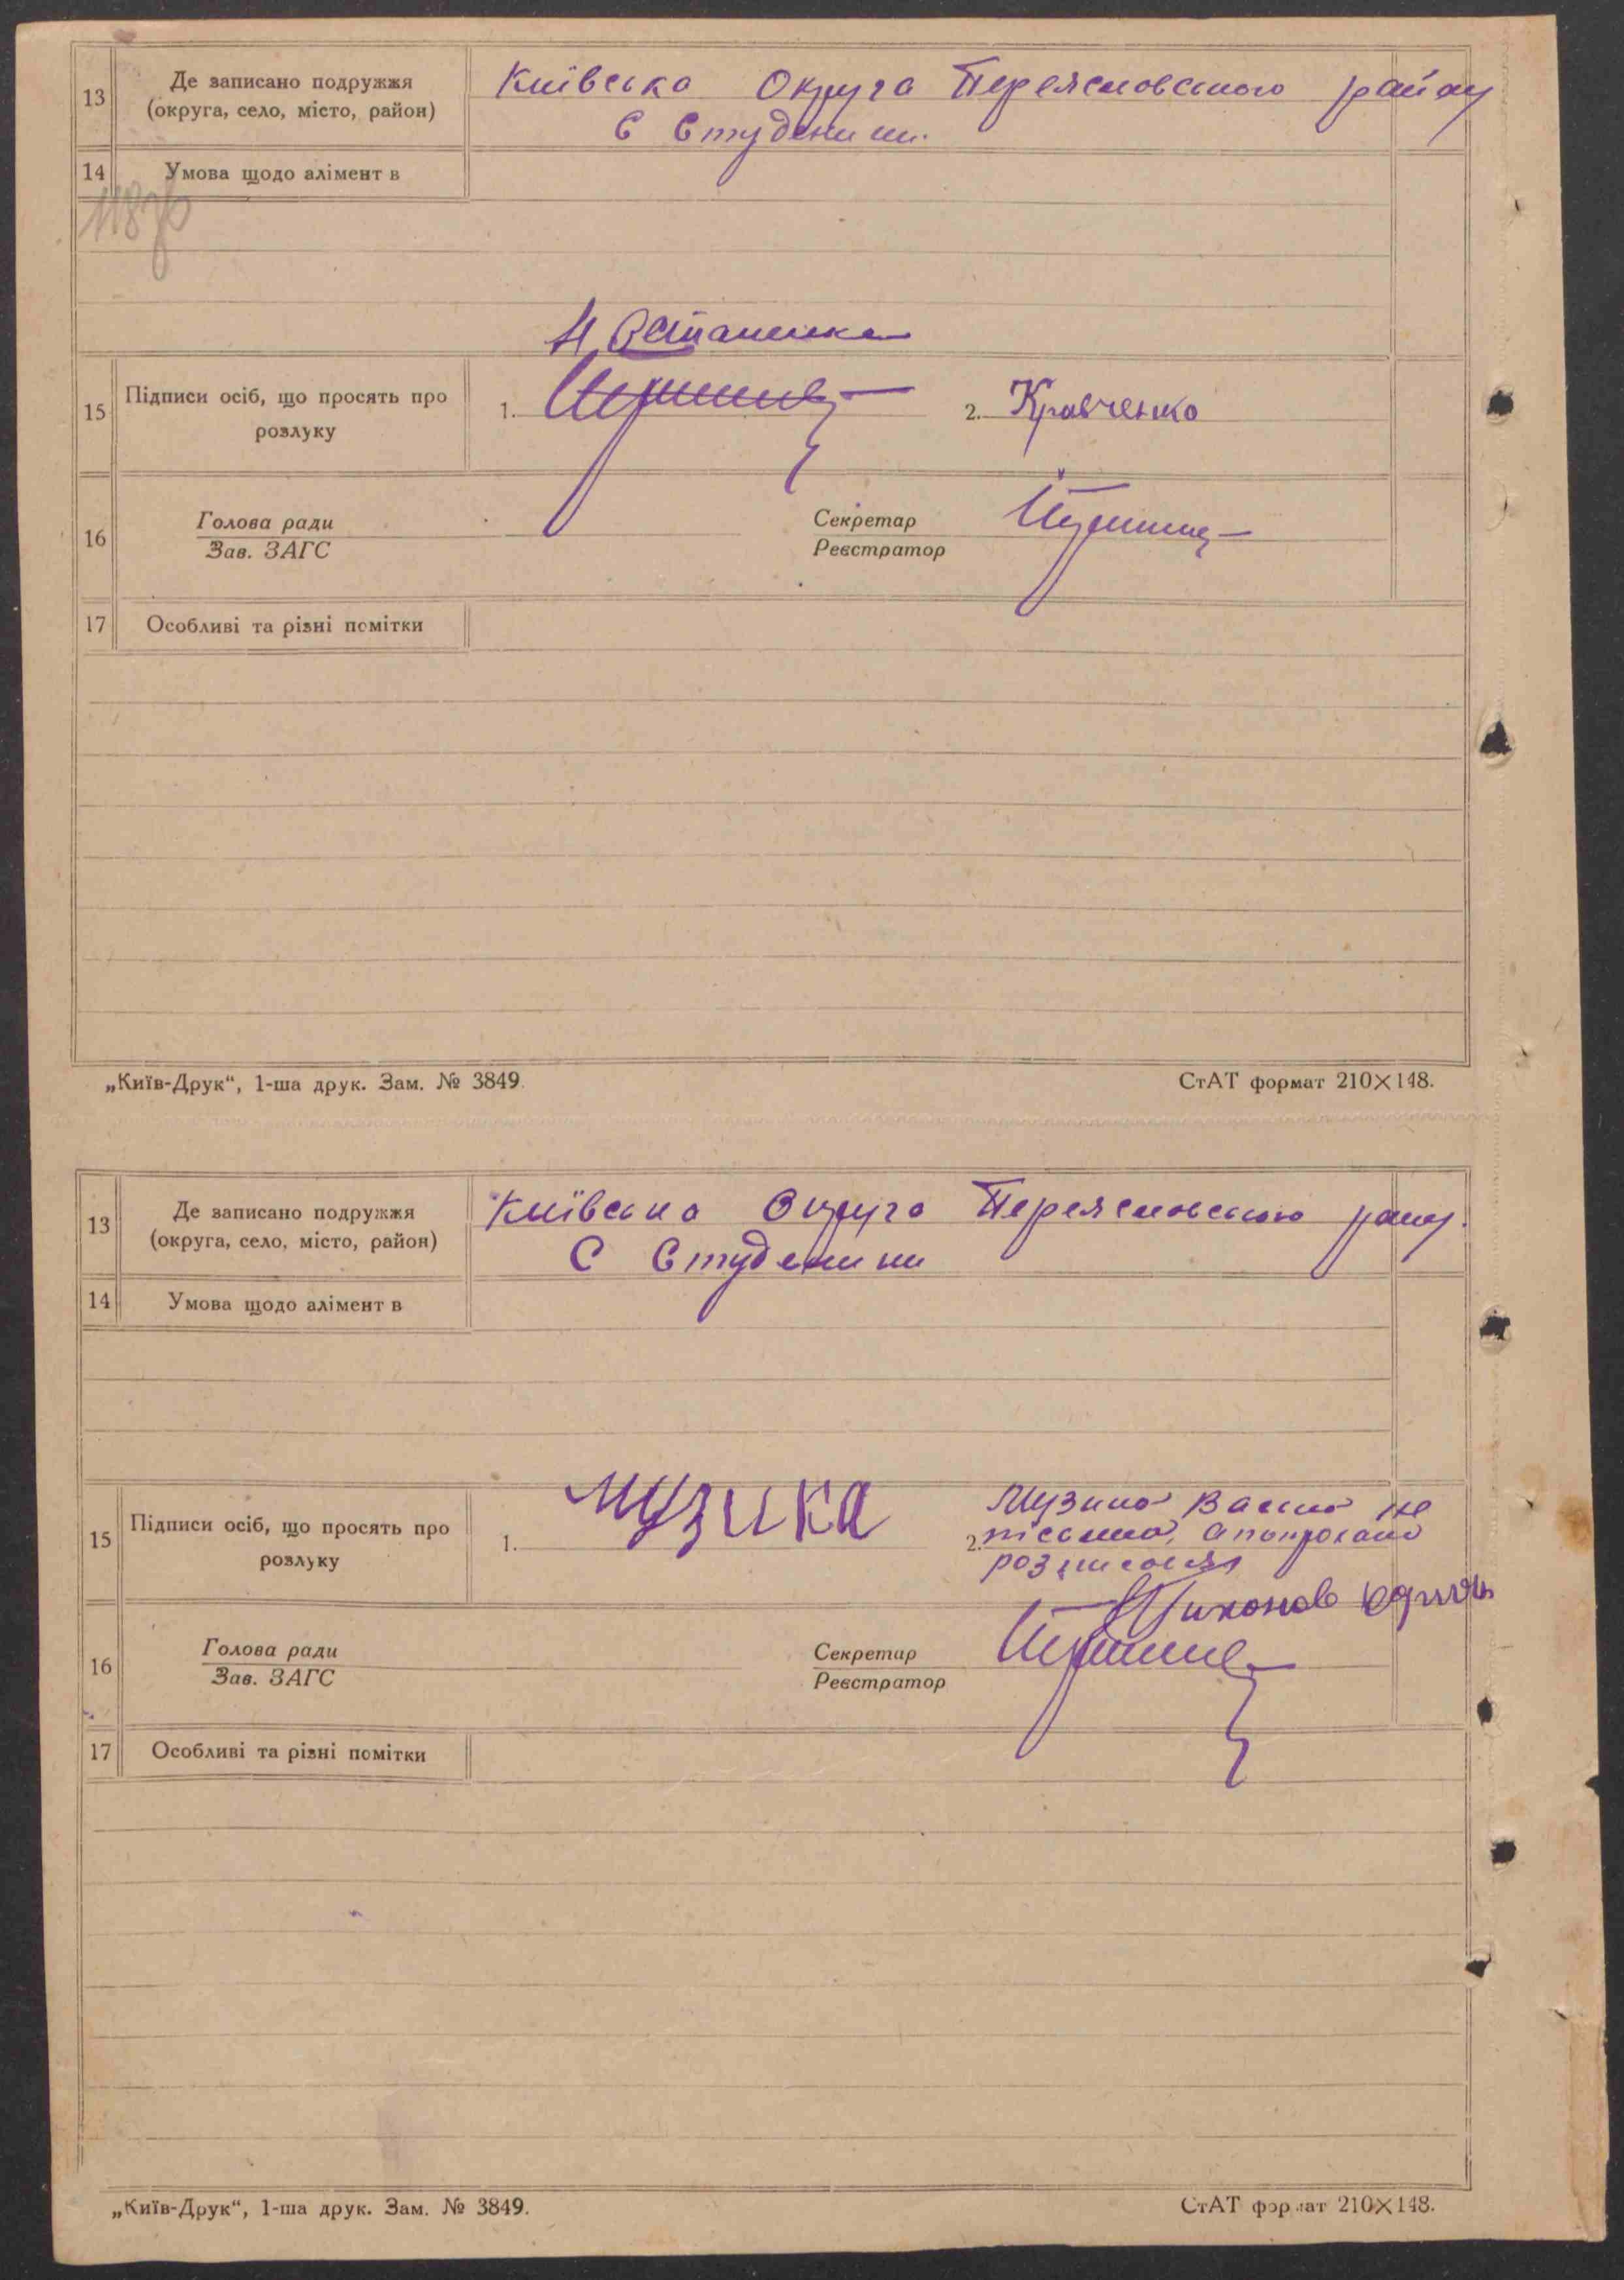 13 Де записано подружжя Київська Округа Переяславського району
(округа, село, місто, район) С Студеники.
14 Умова щодо алімент в
Н Осташенко
15 Підписи осіб, що просять про 1. 2. Кравченко
розлуку
16 Голова ради Секретар
Зав. ЗАГС Реєстратор
17 Особливі та різні помітки
„Київ-Друк“, 1-ша друк. Зам. № 3849. СтАТ формат 210×148.
13 Де записано подружжя Київська Округа Переяславського
(округа, село, місто, район) С Студеники
14 Умова щодо алімент в
15 Підписи осіб, що просять про 1. Музика 2. Музика не
розлуку
16 Голова ради Секретар
Зав. ЗАГС Реєстратор
17 Особливі та різні помітки
„Київ-Друк“, 1-ша друк. Зам. № 3849. СтАТ формат 210×148.